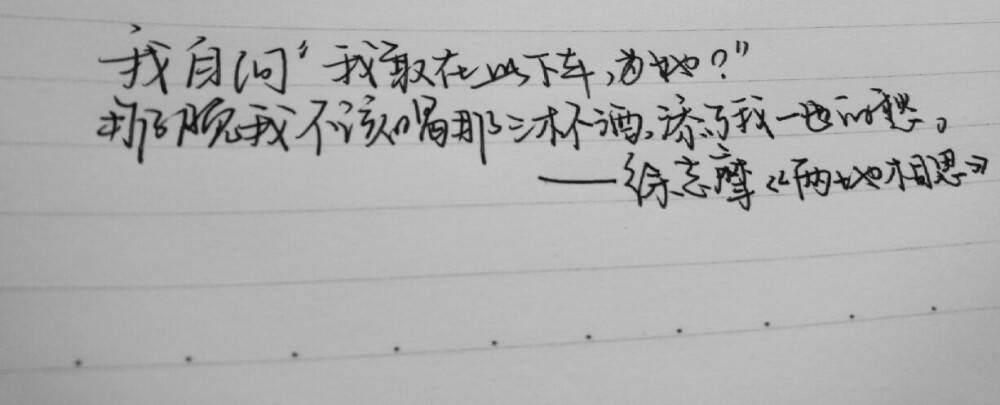 我自问“我敢在此下车,为她?”
那晚我不该喝那三杯酒,添了我一世的愁。
——徐志摩《两地相思》